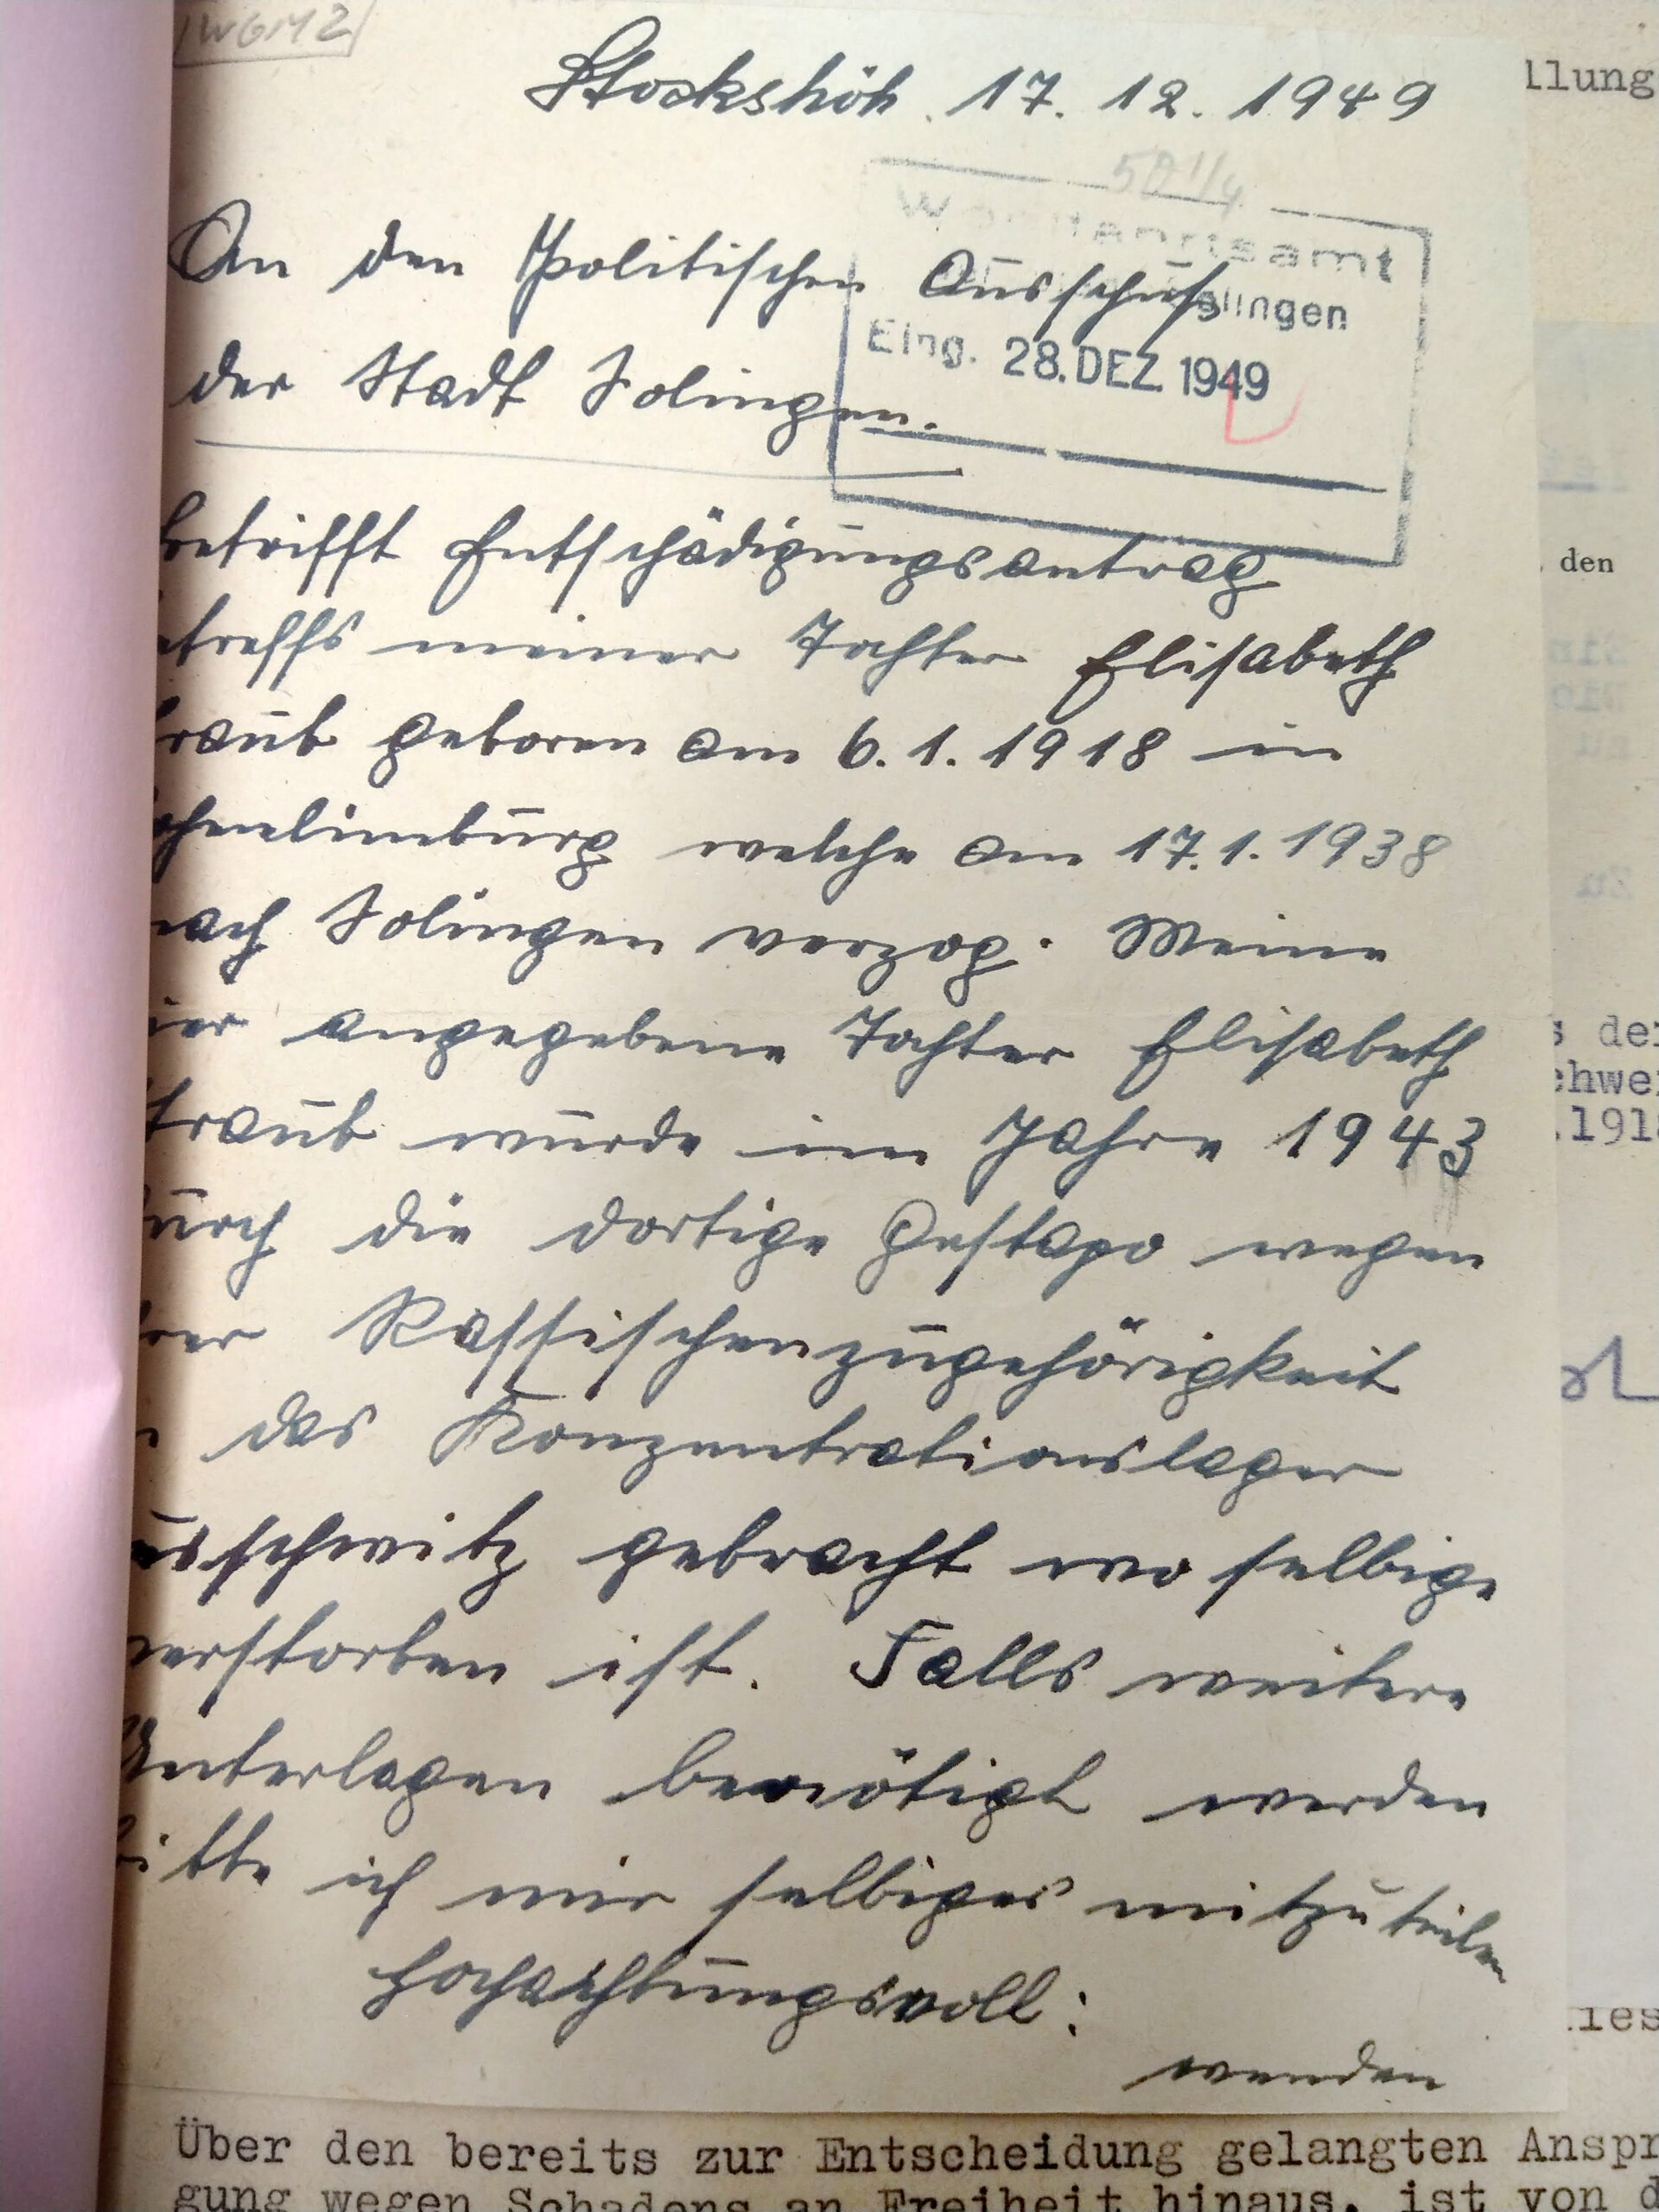 WGM2
Stockshöh. 17. 12. 1949
llung
50 1/4
An den Politischen Ausschuß
Wohlfahrtsamt
Solingen
Eing. 28. DEZ. 1949
der Stadt Solingen.
betrifft Entschädigungsantrag
den
etreffs meiner Tochter Elisabeth
traub geboren am 6. 1. 1918 in
ohenlimburg welche am 17. 1. 1938
nach Solingen verzog. Meine
ier angegebene Tochter Elisabeth
s der
chwe
traub wurde im Jahre 1943
.191
durch die dortige Gestapo wegen
hrer Rassischenzugehörigkeit
n das Konzentrationslager
usschwitz gebracht wo selbige
verstorben ist. Falls weitere
Unterlagen benötigt werden
bitte ich mir selbiges mitzuteilen
Hochachtungsvoll:
ies
wenden
Über den bereits zur Entscheidung gelangten Anspr
gung wegen Schadens an Freiheit hinaus, ist von d